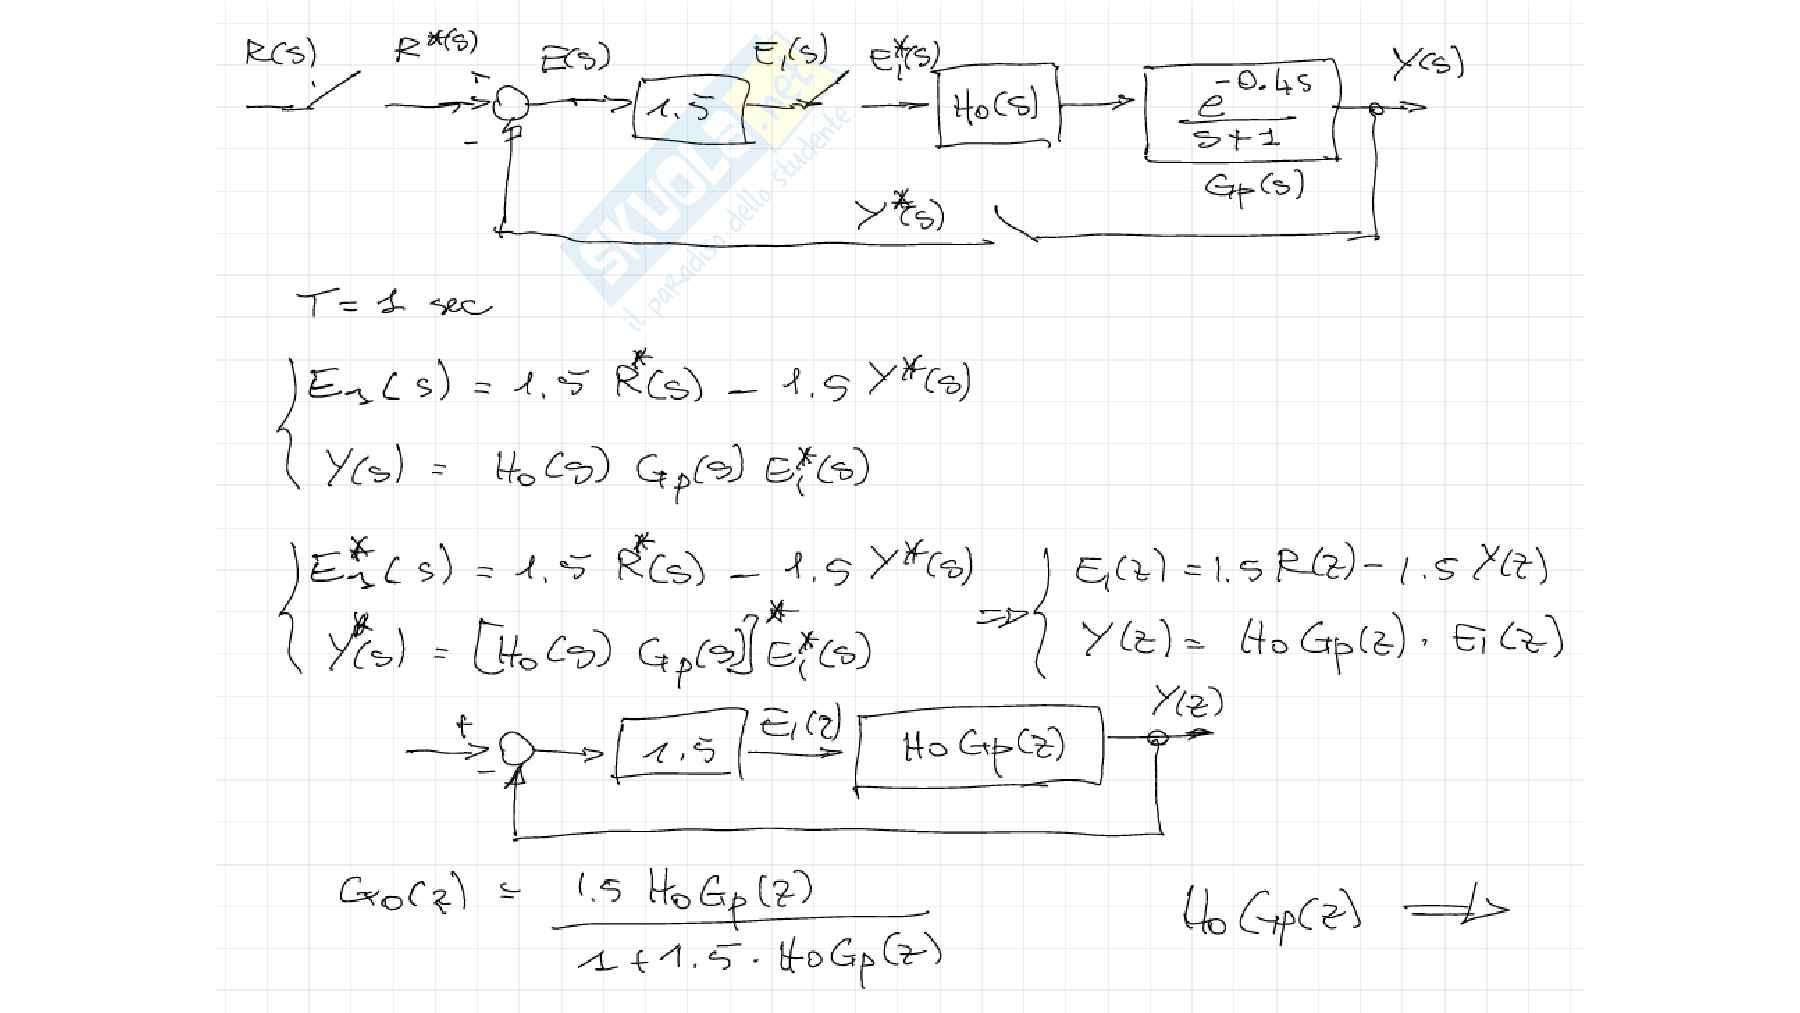 R(s) R*(s) E(s) E₁(s) E₁*(s) Y(s)
+ 1.5 H₀(s) e^{-0.4s}/(s+1)
-
Gp(s)
Y*(s)
SKUOLA.net
il paradiso dello studente
T = 1 sec
E₁(s) = 1.5 R*(s) - 1.5 Y*(s)
Y(s) = H₀(s) Gp(s) E₁*(s)
E₁*(s) = 1.5 R*(s) - 1.5 Y*(s) ⇒ E₁(z) = 1.5 R(z) - 1.5 Y(z)
Y*(s) = [H₀(s) Gp(s)]* E₁*(s) Y(z) = H₀Gp(z) · E₁(z)
+ - 1.5 E₁(z) H₀Gp(z) Y(z)
G₀(z) = 1.5 H₀Gp(z) / (1 + 1.5 · H₀Gp(z)) H₀Gp(z) ⇒